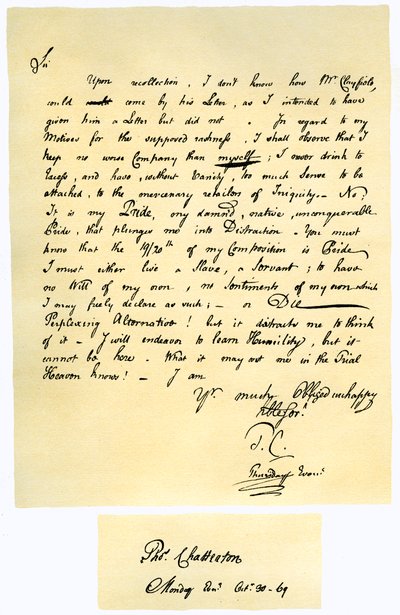 Sir
Upon recollection, I don't know how Mr Clayfield,
could come by his Letter, as I intended to have
given him a Letter but did not. In regard to my
Motives for the supposed rashness, I shall observe that I
keep no worse Company than myself; I never drink to
Excess, and have, without Vanity, too much Sense to be
attached, to the mercenary retailers of Iniquity. — No:
It is my Pride, my damn'd, native, unconquerable
Pride, that plunges me into Distraction. You must
know that the 19/20th of my Composition is Pride
I must either live a Slave, a Servant; to have
no Will of my own, no Sentiments of my own which
I may freely declare as such; — or Die
Perplexing Alternative! but it distracts me to think
of it — I will endeavor to learn Humility, but it
cannot be here. What it may cost me in the Trial
Heaven knows! — I am
Yr. much Obliged unhappy
T. C.
Thursday Evens
Thos. Chatterton
Monday Octr. 30 - 69